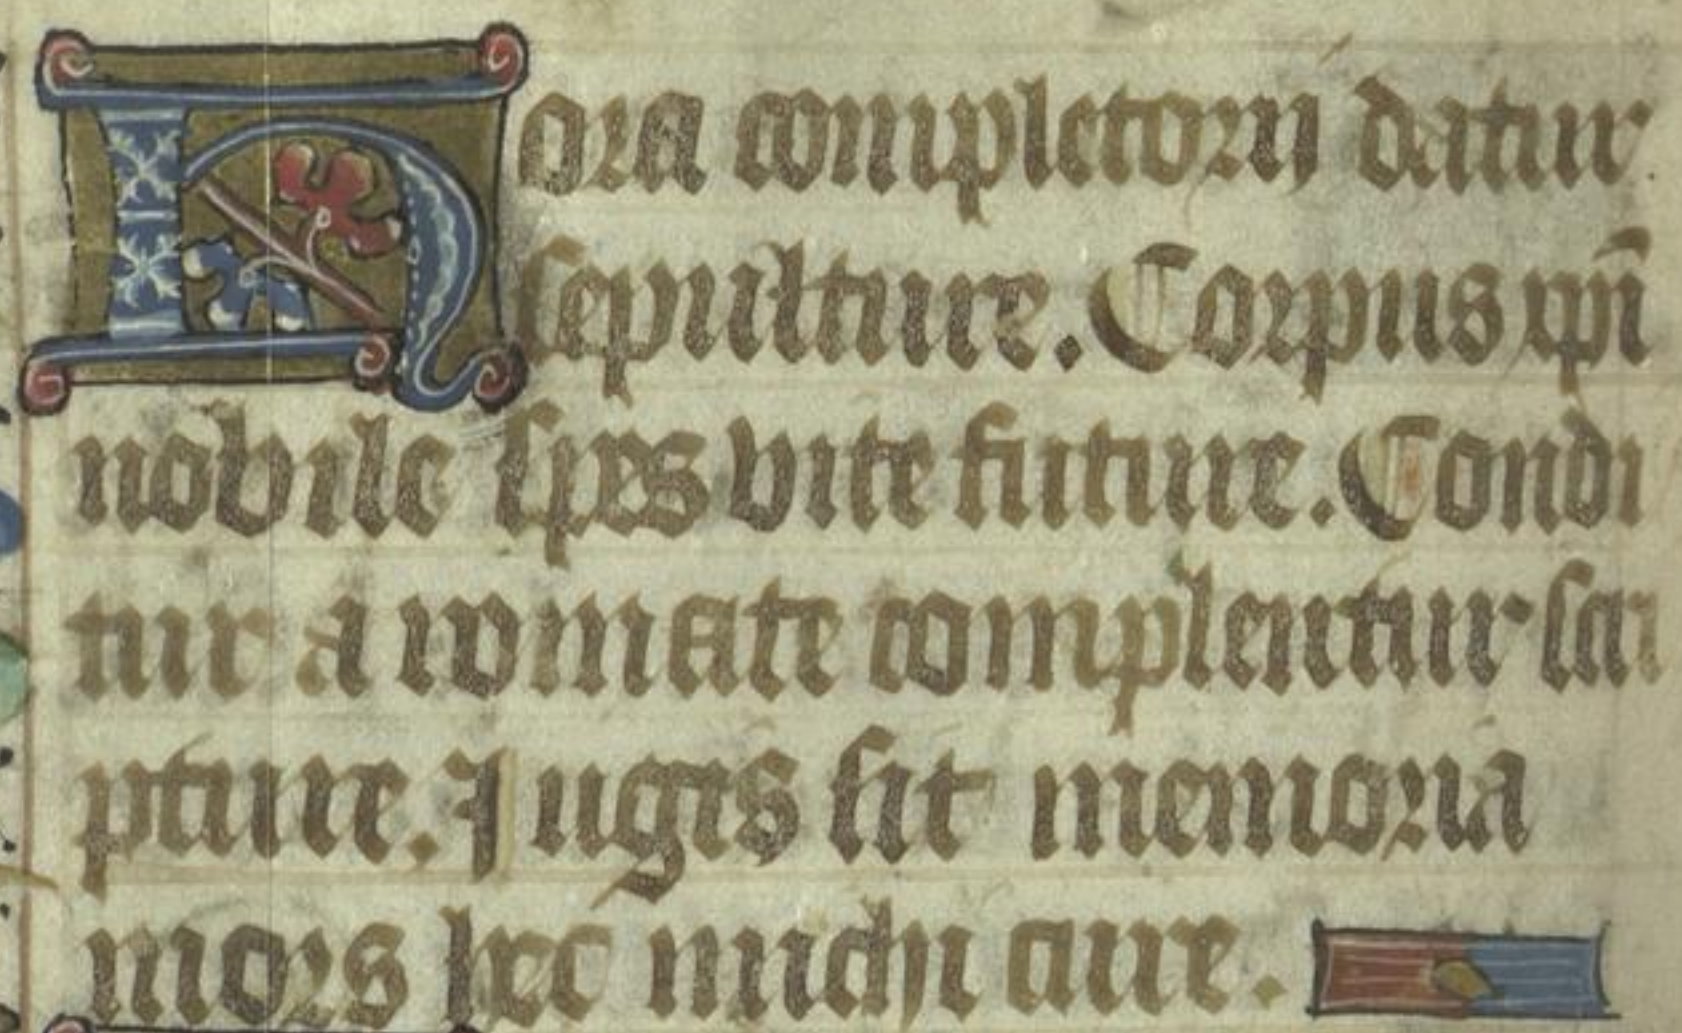 Hora completorij datur
sepulture. Corpus xpī
nobile spes vite future. Condi
tur a romate complentur scri
pture. Jugis sit memoria
mors hec michi cure.